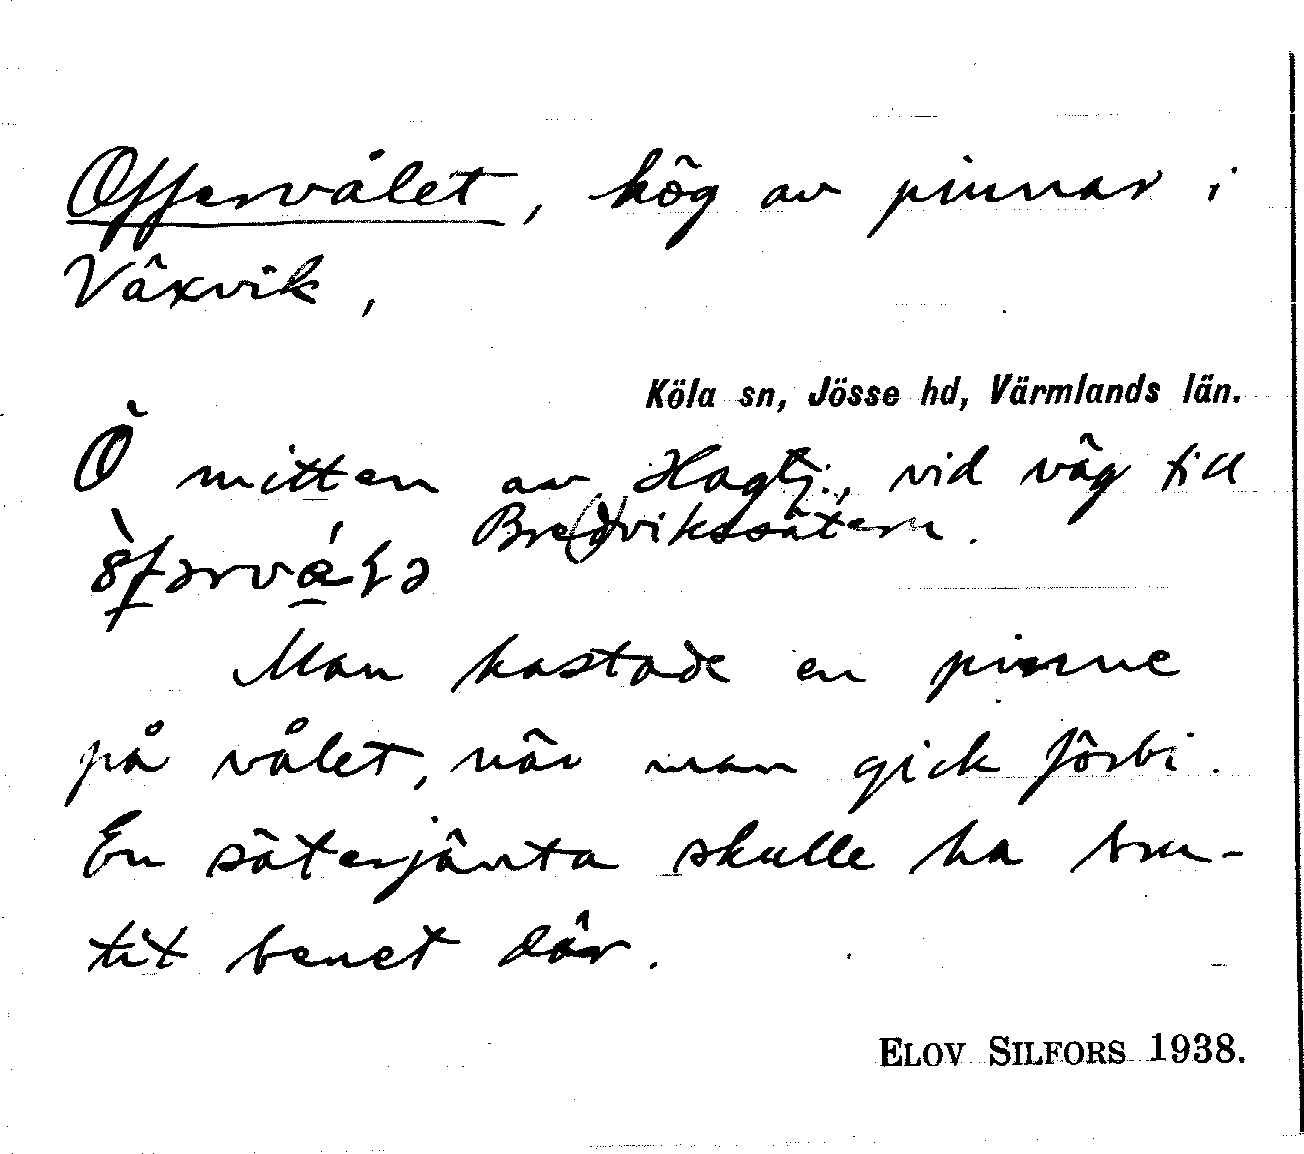 Offervålet, hög av pinnar i
Växvik,
Köla sn, Jösse hd, Värmlands län.
Ö mitten av Hagtj., vid väg till
Bre(d)vikssätern.
Man kastade en pinne
på vålet, när man gick förbi.
En säterjänta skulle ha bru-
tit benet där.
ELOV SILFORS 1938.